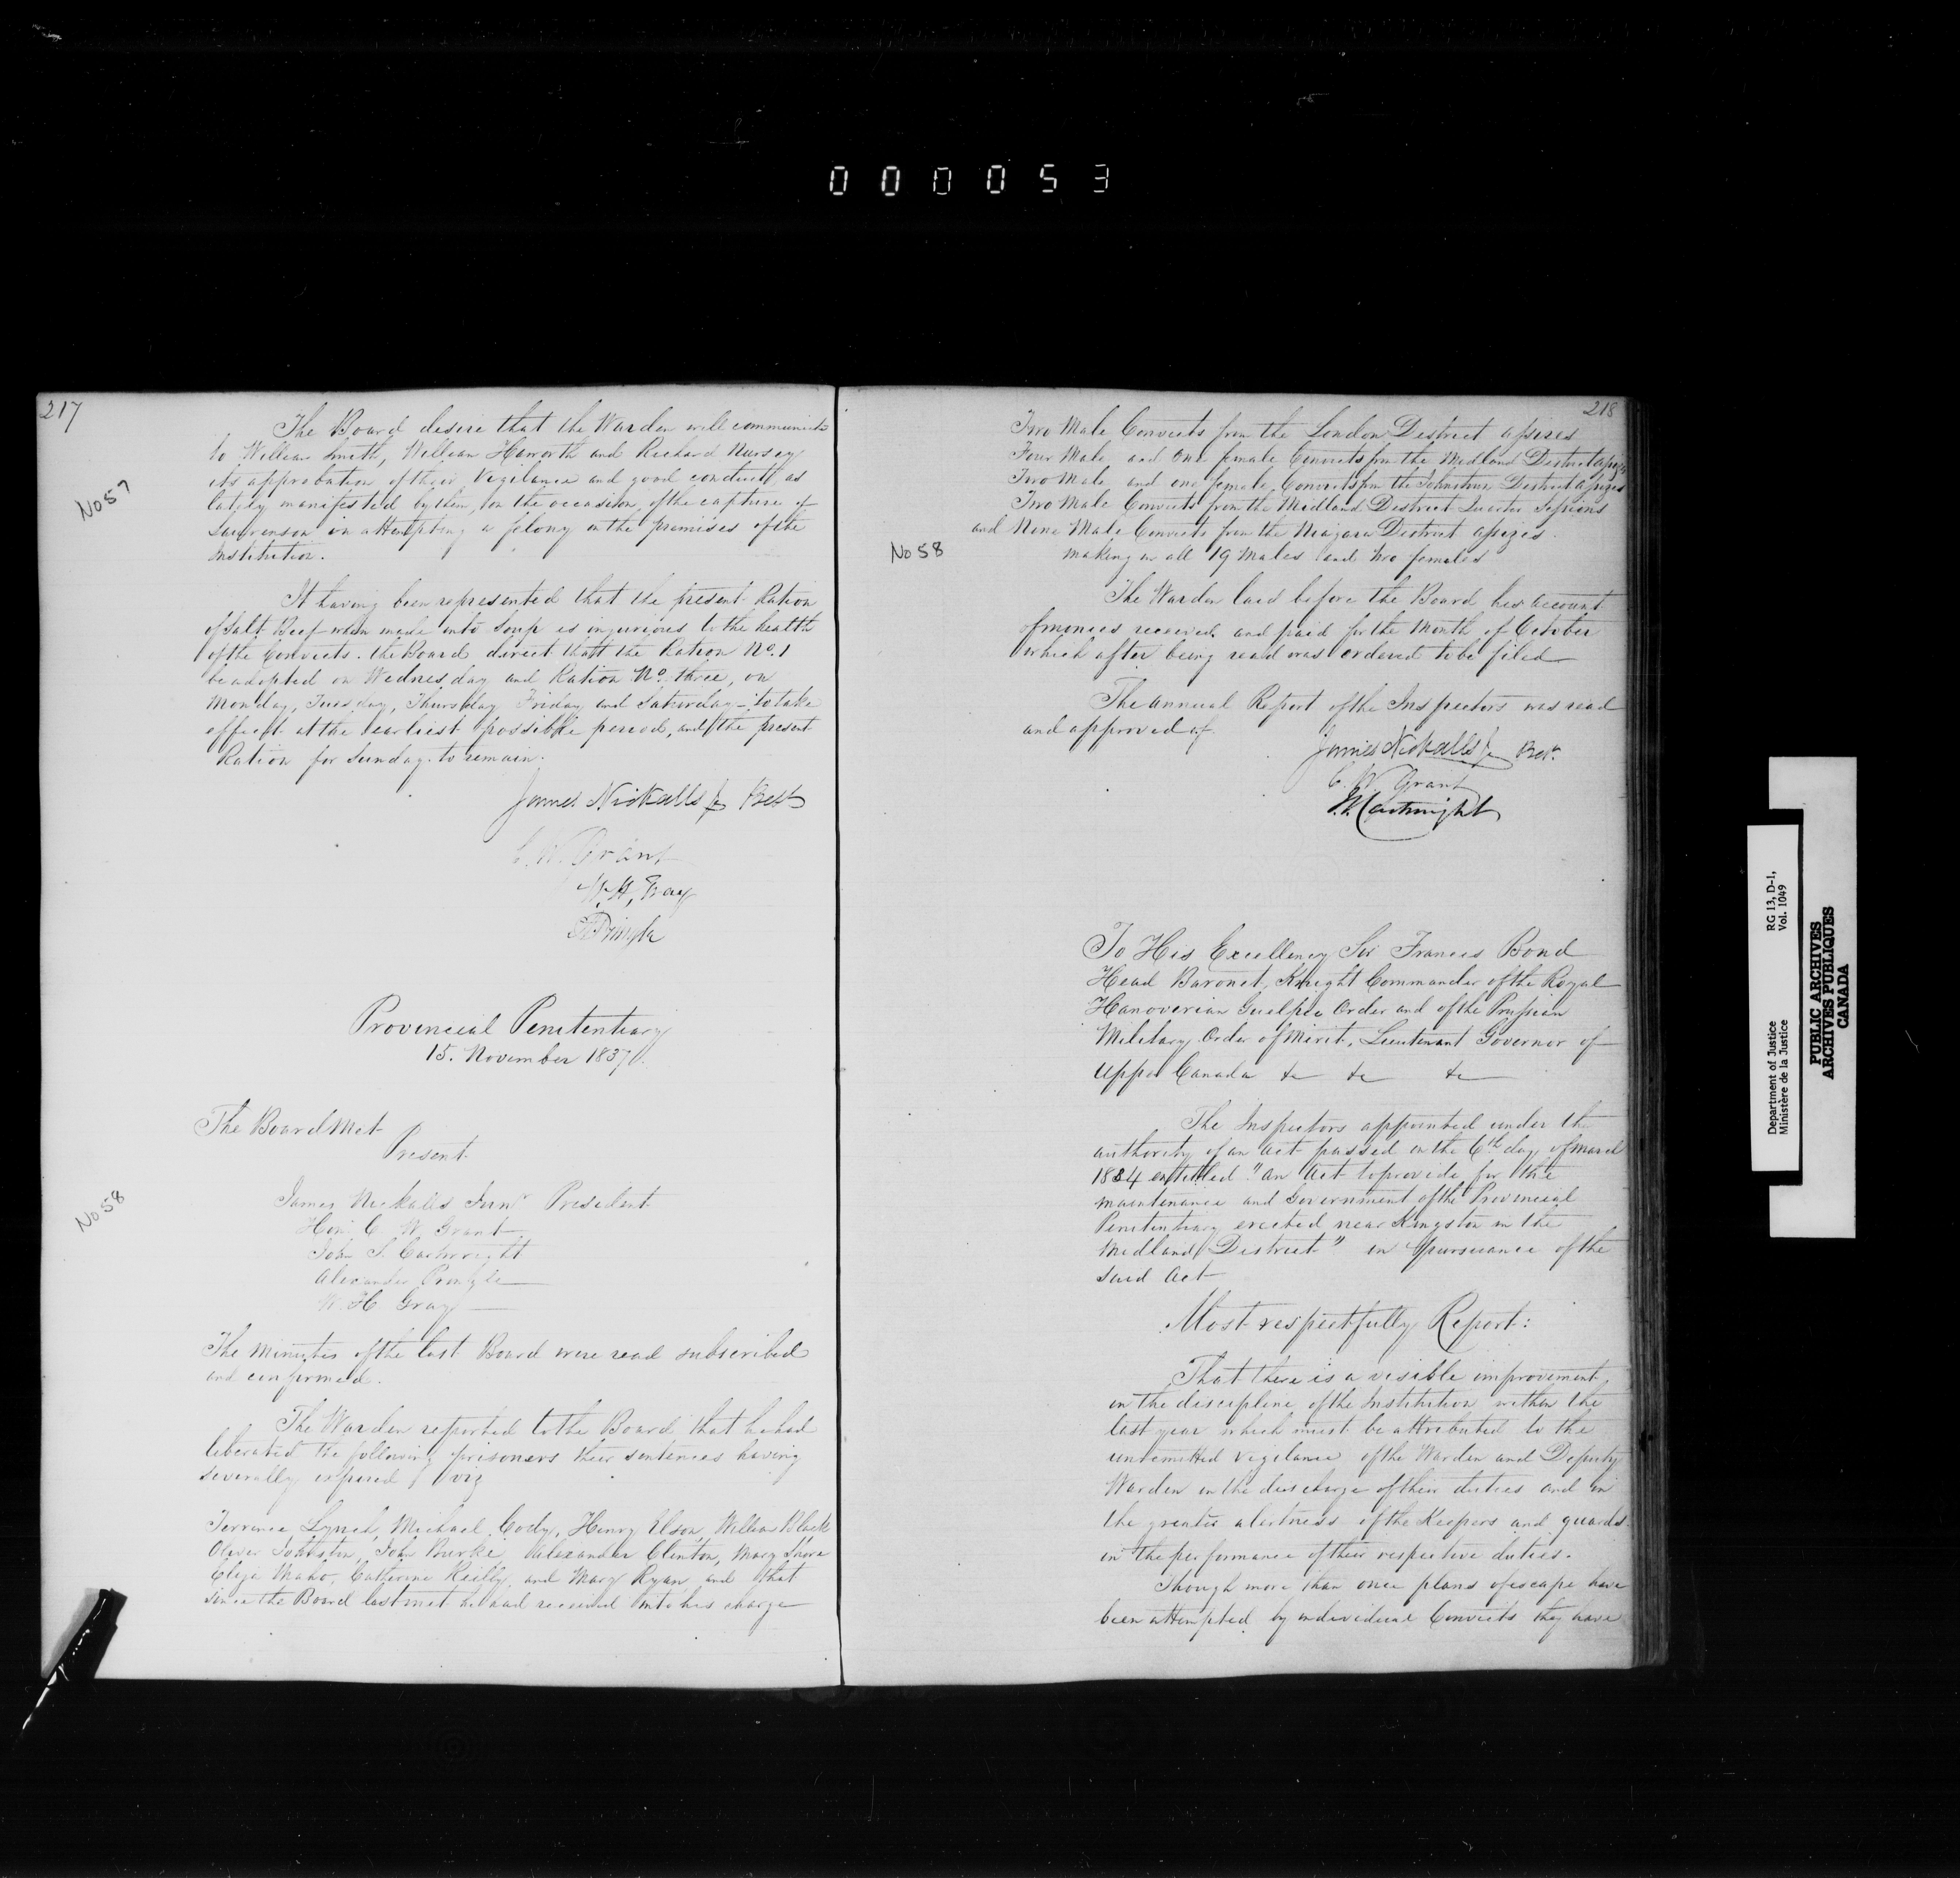 000053
217
The Board desire that the Warden will communicate
to William Smith, William Haworth and Richard Nursey
its approbation of their Vigilance and good conduct as
lately manifested by them, on the occasion of the capture of
in attempting a felony on the premises of the
Institution.
No 57
It having been represented that the present Ration
of Salt Beef when made into Soup is injurious to the health
of the Convicts. the Board direct that the Ration No. 1
be adopted on Wednesday and Ration No. three, on
Monday, Tuesday, Thursday Friday and Saturday - to take
effect at the earliest possible period, and the present
Ration for Sunday to remain.
James Nickalls Jr Prest
C. W. Grant
W. H. Gray
A Pringle
Provincial Penitentiary
15. November 1837.
The Board Met
Present
No 58
James Nickalls Junr President
Hon. C. W. Grant
John S. Cartwright
Alexander Pringle
W. H Gray
The minutes of the last Board were read subscribed
and confirmed.
The Warden reported to the Board that he had
liberated the following prisoners their sentences having
severally expired viz
Terrance Lynch, Michael Cody, Henry Elson, William Black
Oliver Johnston, John Bourke, Alexander Clinton, Mary
Eliza Catherine Reilly and Mary Ryan, and that
since the Board last met he had received into his charge
218
Two Male Convicts from the London District assizes
Four Male and One female Convicts from the Midland District assizes
Two Male and one female Convicts from the Johnstown District assizes
Two Male Convicts from the Midland District Quarter Sessions
and Nine Male Convicts from the Niagara District assizes.
making in all 19 Males and two females
No 58
The Warden laid before the Board his account
of monies received and paid for the Month of October
which after being read was ordered to be filed
The annual Report of the Inspectors was read
and approved of
James Nickalls Jr Prest.
C. W. Grant
J. S. Cartwright
To His Excellency Sir Francis Bond
Head Baronet, Knight Commander of the Royal
Hanoverian Guelphic Order and of the Prussian
Military Order of Merit, Lieutenant Governor of
Upper Canada &c &c &c
The Inspectors appointed under the
authority of an act passed on the 6th day of march
1834 entitled "An Act to provide for the
maintenance and Government of the Provincial
Penitentiary erected near Kingston in the
Midland District" in pursuance of the
said Act
Most respectfully Report:
That there is a visible improvement
in the discipline of the Institution within the
last year which must be attributed to the
unremitted vigilance of the Warden and Deputy
Warden in the discharge of their duties and in
the greater alertness of the Keepers and guards
in the performance of their respective duties.
Though more than once plans of escape have
been attempted by individual Convicts they have
Department of Justice
Ministère de la Justice
RG 13, D-1,
Vol. 1049
PUBLIC ARCHIVES
ARCHIVES PUBLIQUES
CANADA